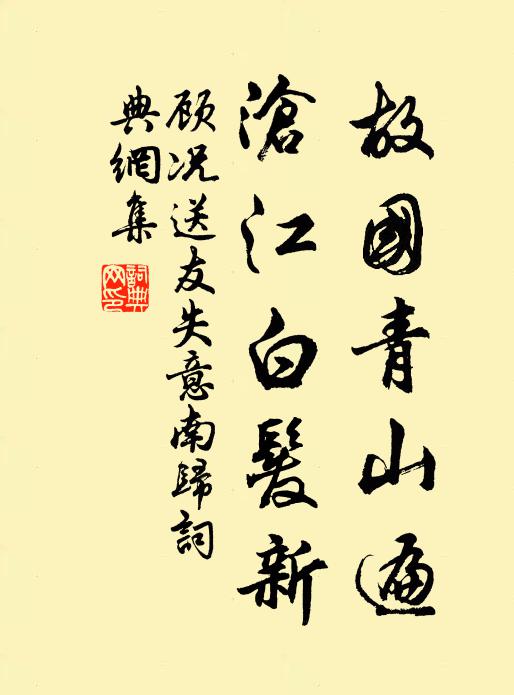 故國青山遍
滄江白髮新
顾况送友失意南歸詞
典網集
詞典网印